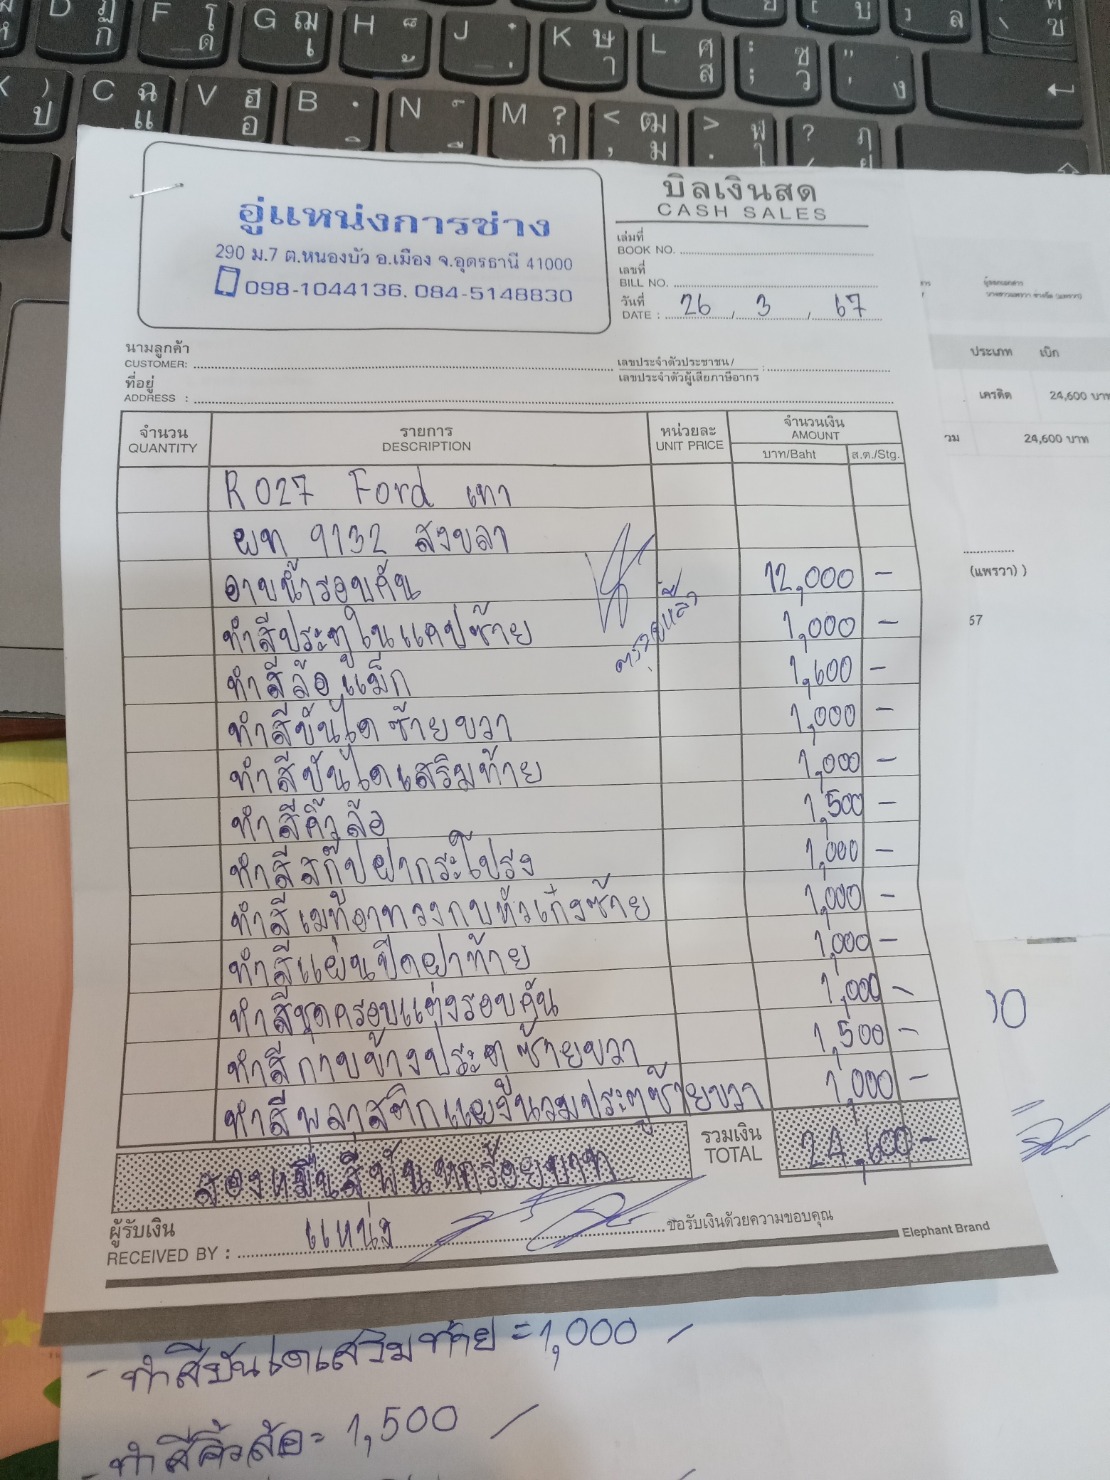 D ฏ ก
F โ ด
G ฌ เ
H
J
K ษ า
L ศ ส
: ; ซ ว
" ' . ง
C ฉ แ
V ฮ อ
B
N
M ? ท
< , ฒ ม
> . ฬ
? /
อู่แหน่งการช่าง
290 ม.7 ต.หนองบัว อ.เมือง จ.อุดรธานี 41000
098-1044136. 084-5148830
บิลเงินสด
CASH SALES
เล่มที่
BOOK NO.
เลขที่
BILL NO.
วันที่
DATE : 26 , 3 , 67
นามลูกค้า
CUSTOMER:
เลขประจำตัวประชาชน/
เลขประจำตัวผู้เสียภาษีอากร :
ที่อยู่
ADDRESS :
จำนวน QUANTITY รายการ DESCRIPTION หน่วยละ UNIT PRICE จำนวนเงิน AMOUNT
บาท/Baht ส.ต./Stg.
R027 Ford เทา
ผท 9132 สงขลา
อาบน้ำรอบคัน 12,000 –
ทำสีประตูในแคปซ้าย 1,000 –
ทำสีล้อแม็ก 1,600 –
ทำสีบันได ซ้ายขวา 1,000 –
ทำสีบันไดเสริมท้าย 1,000 –
ทำสีคิ้วล้อ 1,500 –
ทำสีสกู๊ปฝากระโปรง 1,000 –
1,000 –
ทำสีแผ่นปิดฝาท้าย 1,000 –
ทำสีชุดครอบแต่งรอบคัน 1,000 –
ทำสี กาบข้างประตู ซ้ายขวา 1,500 –
1,000 –
สองหมื่นสี่พันหกร้อยบาท
รวมเงิน TOTAL 24,600 –
ผู้รับเงิน
RECEIVED BY : แหน่ง
ขอรับเงินด้วยความขอบคุณ
Elephant Brand
ประเภท เบิก
เครดิต 24,600 บาท
24,600 บาท
(แพรวา) )
57
- ทำสีบันไดเสริมท้าย = 1,000
- ทำสีคิ้วล้อ = 1,500